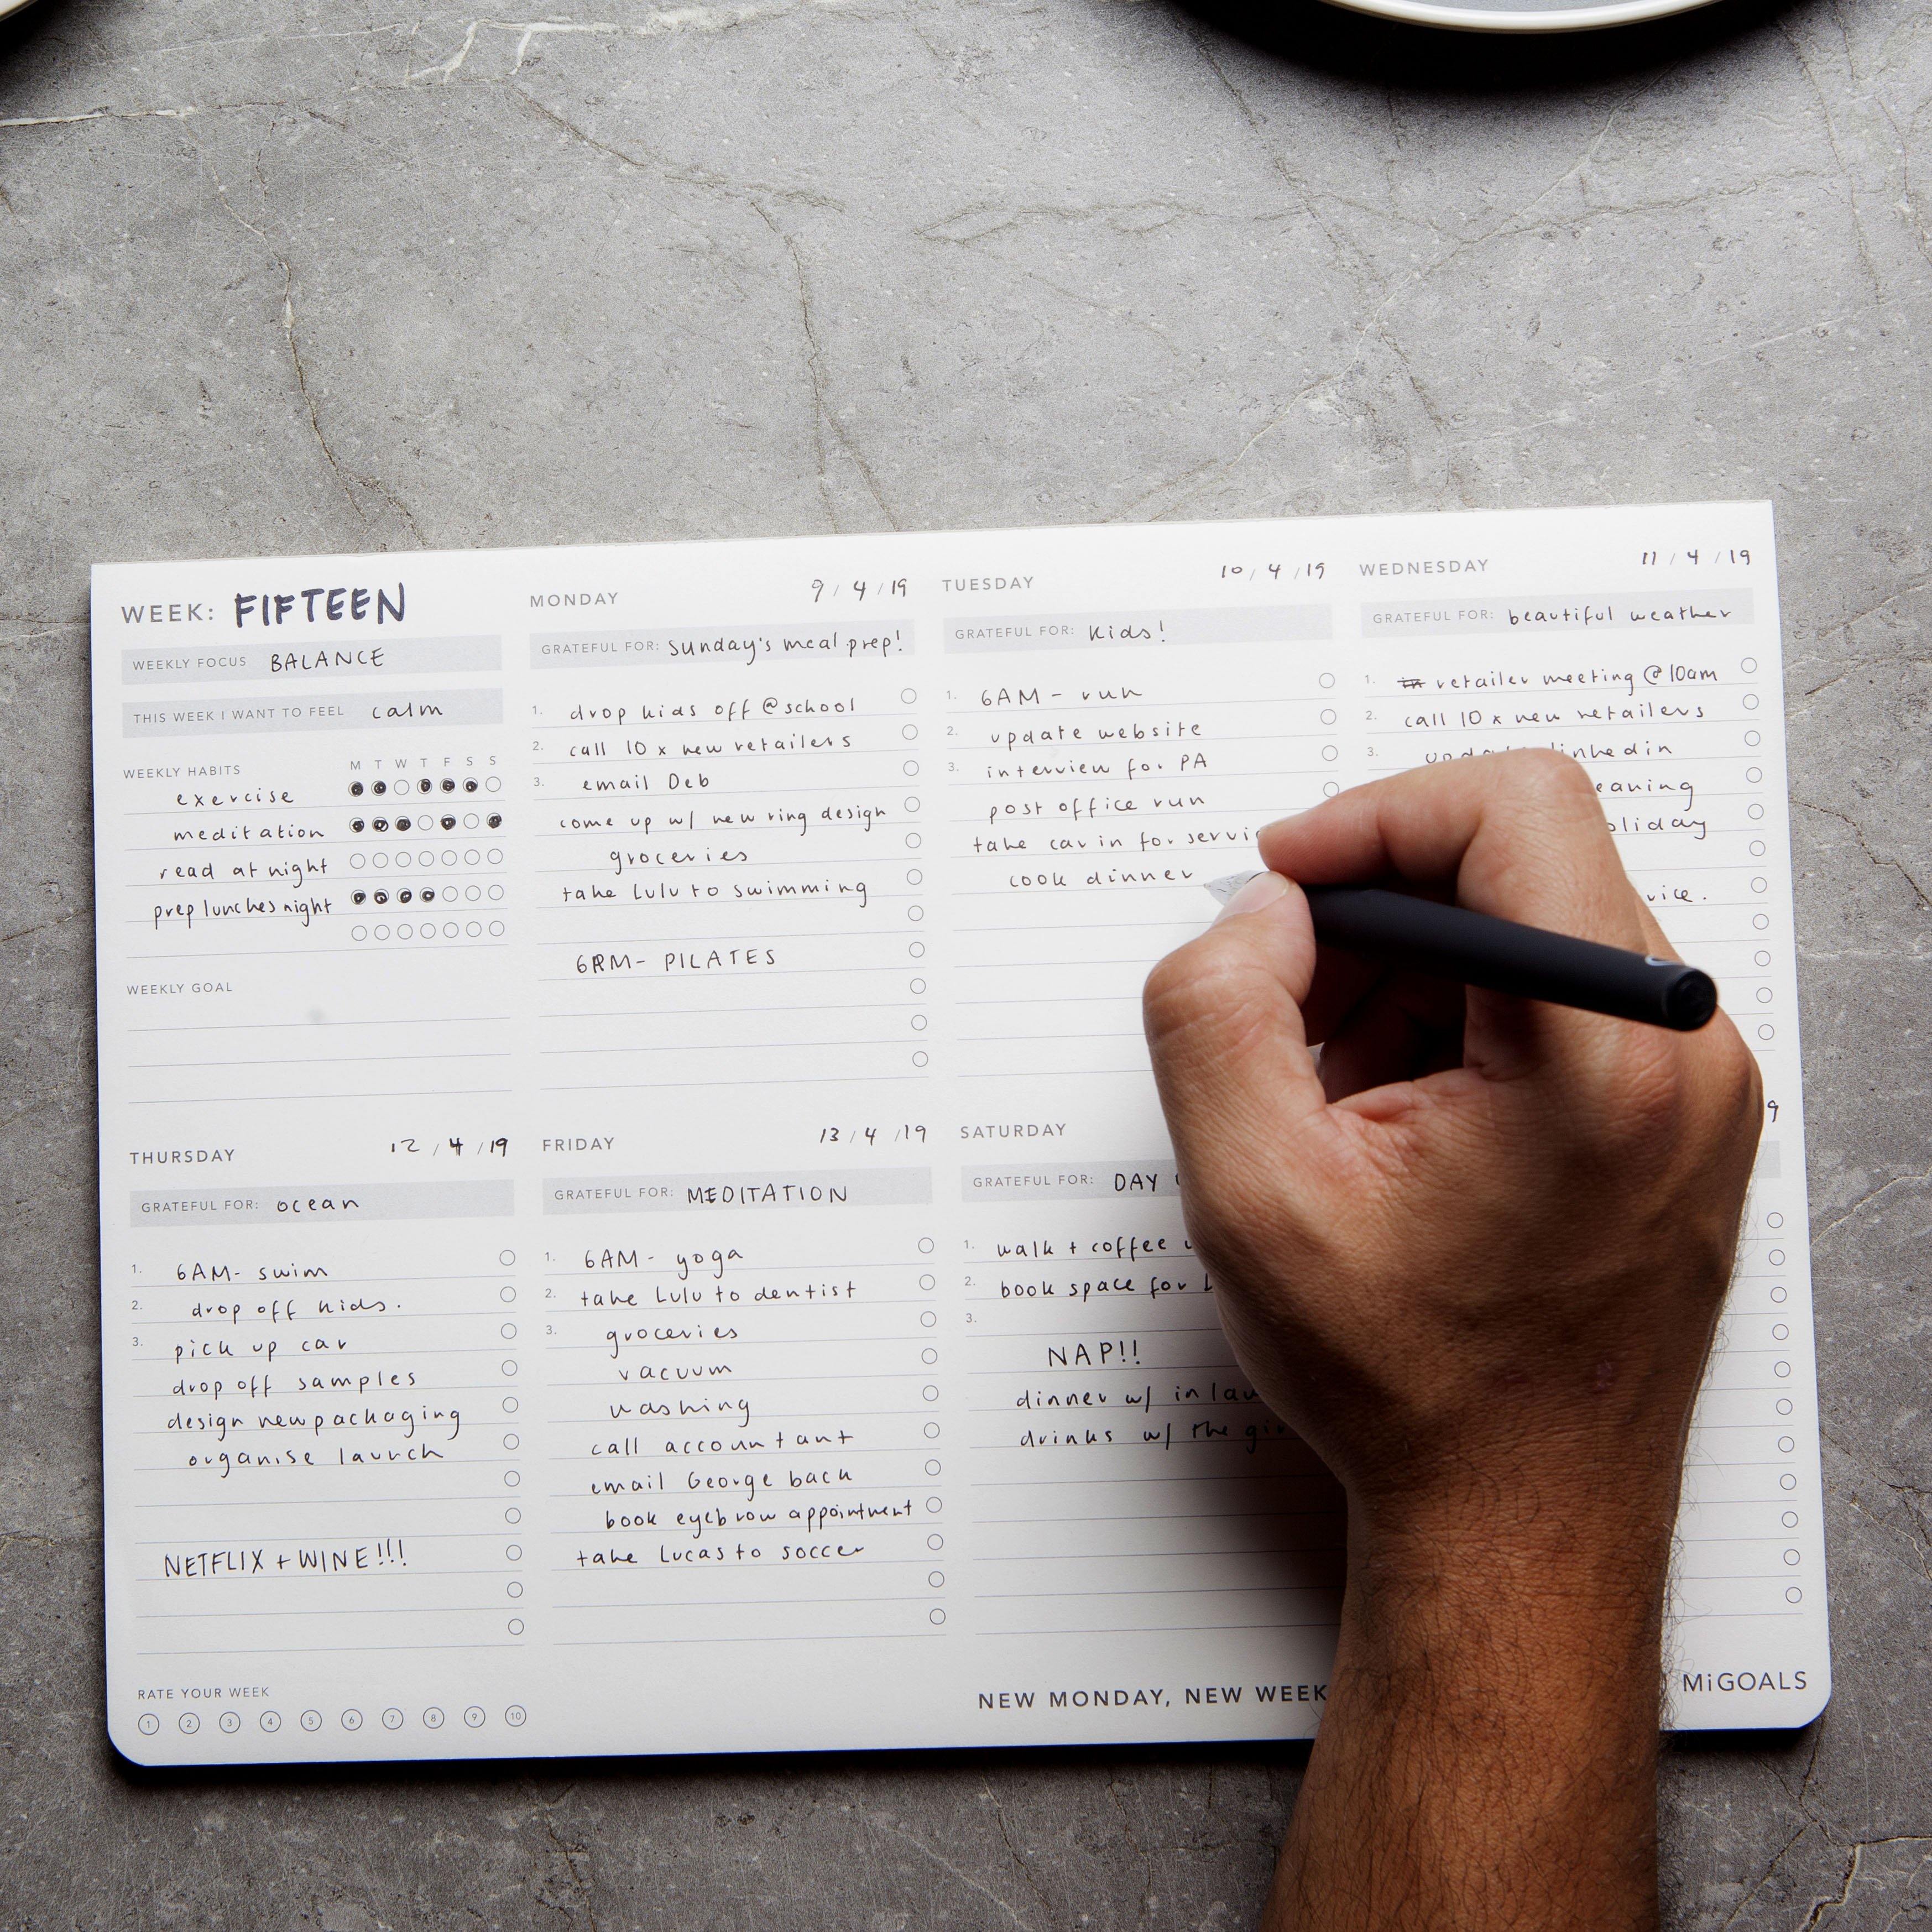 WEEK: FIFTEEN
WEEKLY FOCUS BALANCE
THIS WEEK I WANT TO FEEL calm
WEEKLY HABITS M T W T F S S
exercise
meditation
read at night
prep lunches night
WEEKLY GOAL
MONDAY 9/4/19
GRATEFUL FOR: Sunday's meal prep!
1. drop kids off @school
2. call 10 x new retailers
3. email Deb
come up w/ new ring design
groceries
take Lulu to swimming
6PM- PILATES
TUESDAY 10/4/19
GRATEFUL FOR: Kids!
1. 6AM- run
2. update website
3. interview for PA
post office run
take car in for
cook dinner
WEDNESDAY 11/4/19
GRATEFUL FOR: beautiful weather
1. retailer meeting @10am
2. call 10 x new retailers
3. linkedin
THURSDAY 12/4/19
GRATEFUL FOR: ocean
1. 6AM- swim
2. drop off kids.
3. pick up car
drop off samples
design new packaging
organise launch
NETFLIX + WINE!!!
FRIDAY 13/4/19
GRATEFUL FOR: MEDITATION
1. 6AM- yoga
2. take Lulu to dentist
3. groceries
vacuum
washing
call accountant
email George back
book eyebrow appointment
take Lucas to soccer
SATURDAY
GRATEFUL FOR: DAY
1. walk + coffee
2. book space for
3.
NAP!!
dinner w/ in
drinks w/ the
RATE YOUR WEEK
1 2 3 4 5 6 7 8 9 10
NEW MONDAY, NEW WEEK
MiGOALS